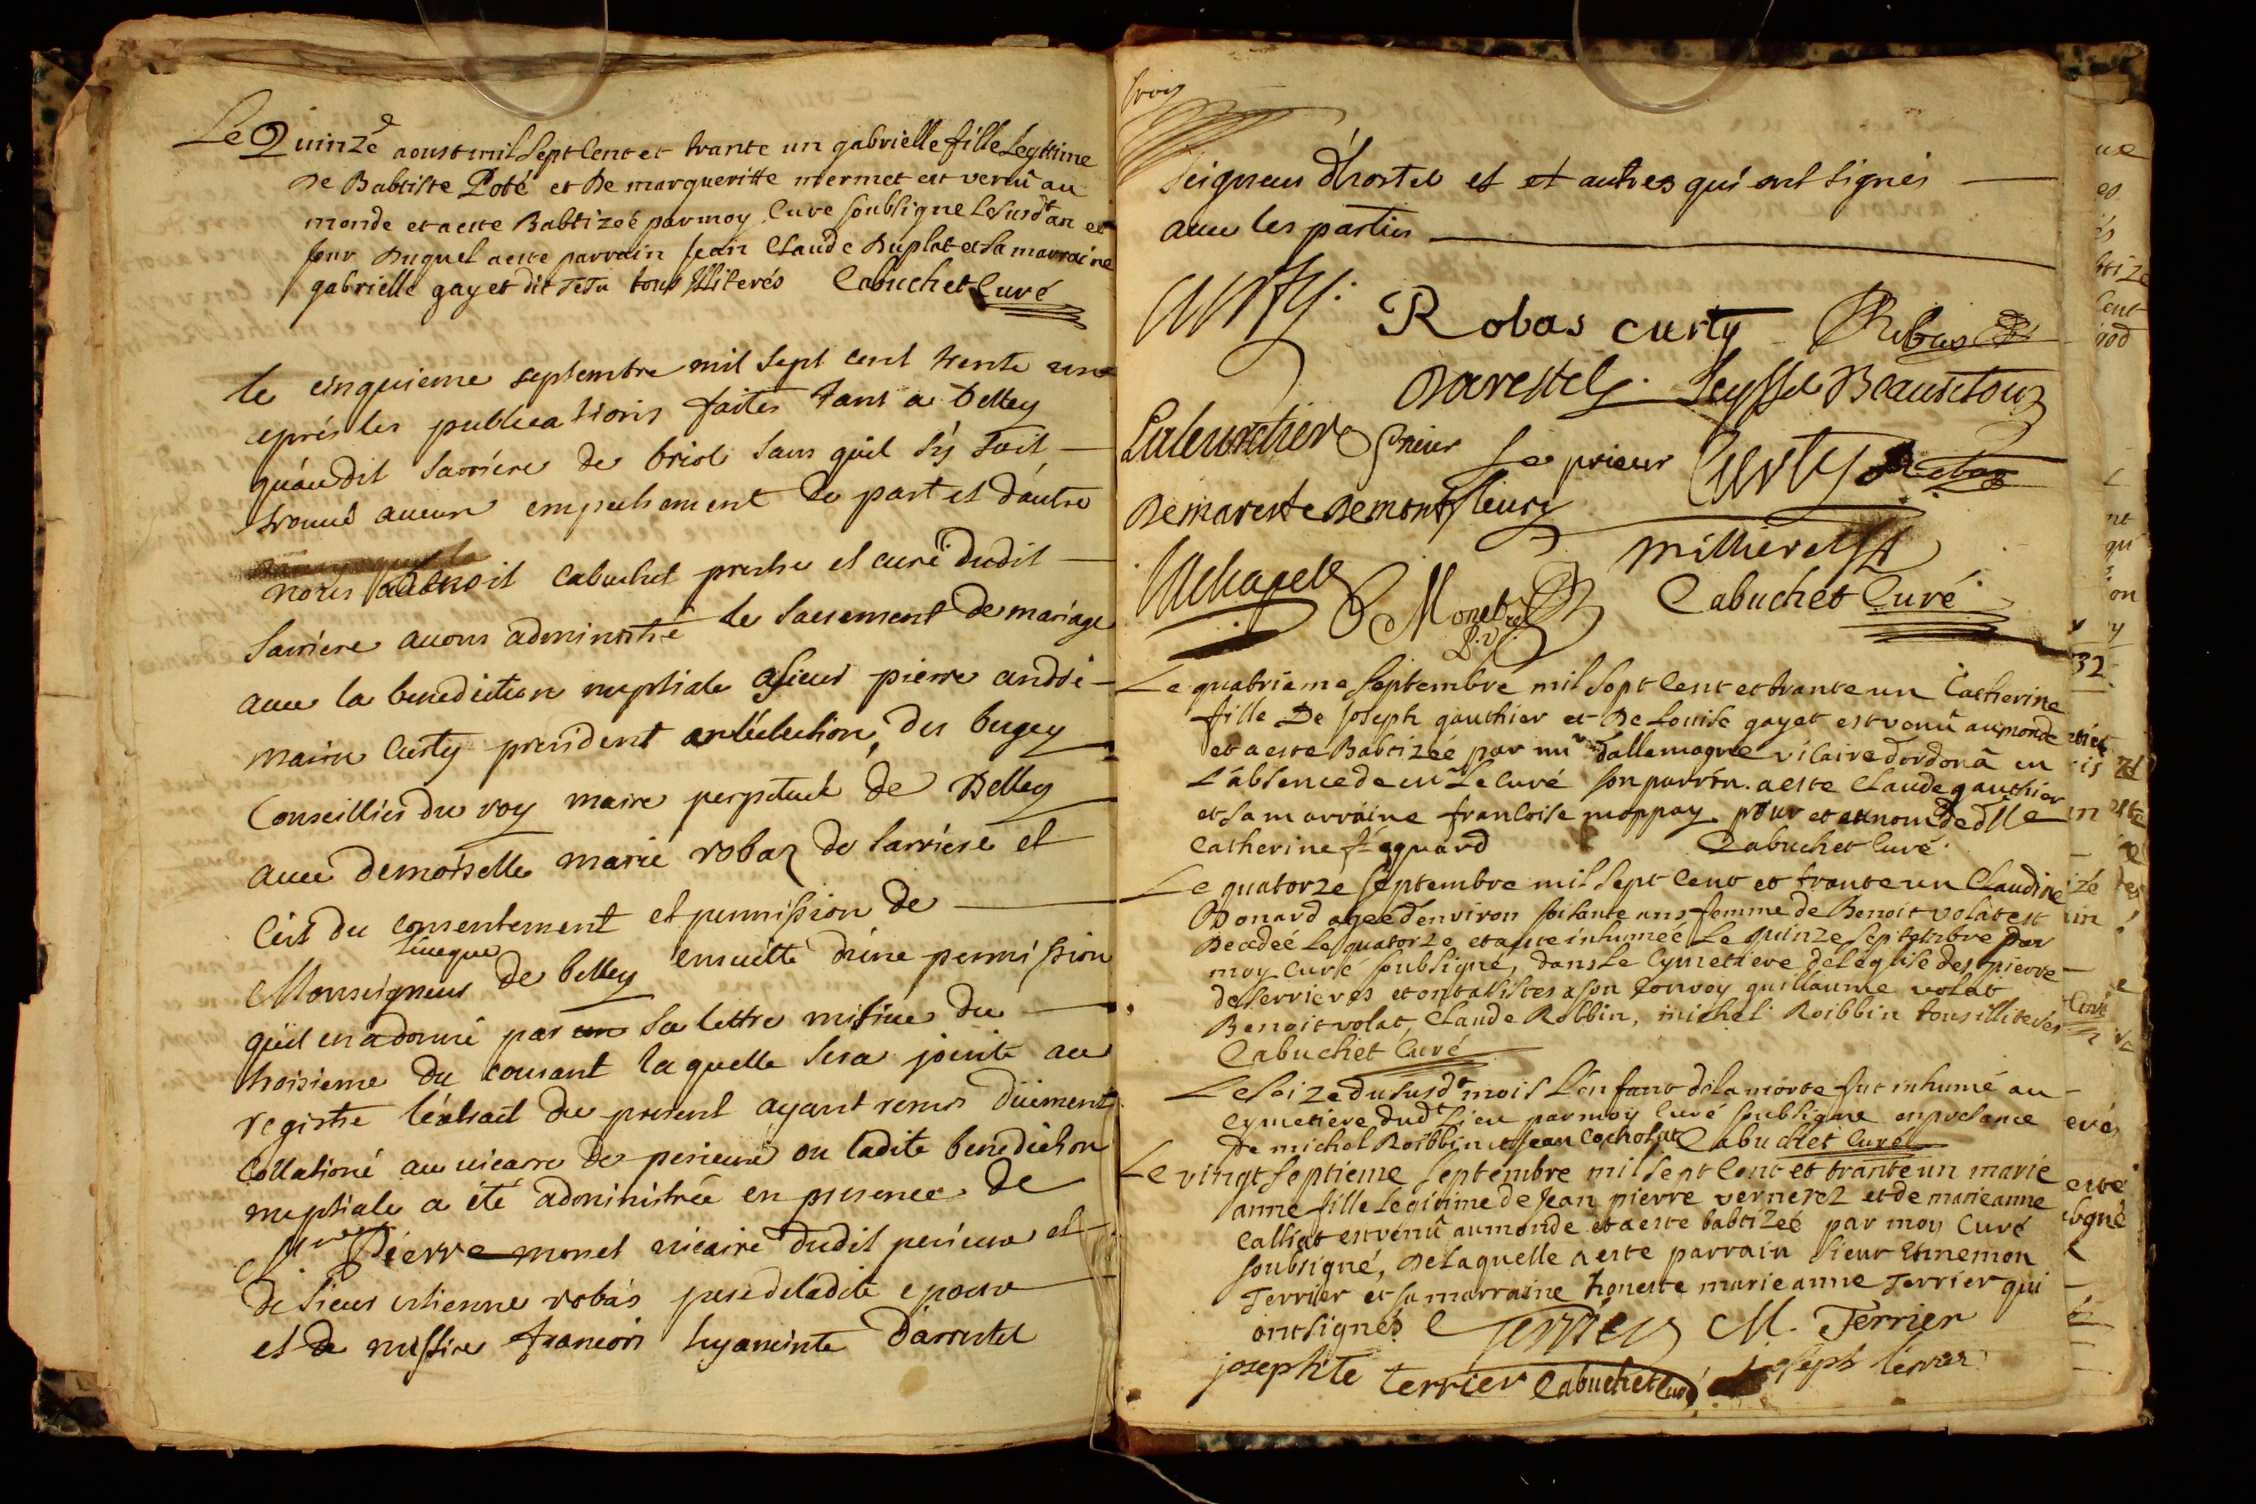 Le Quinze aoust mil sept cent et trante un gabrielle fille Legttime
De Babtiste Poté et De margueritte mermet est venû au
monde et a este Babtizeé par moy Curé soubsigne Le susdt an et
jour Duquel a este parrain Jean Claude Duplat et sa marraine
gabrielle gayet dit TeTu tous illiterés Cabuchet Curé
le cinquieme septembre mil sept cent trente un
aprés les publications faites tant a Belley
qu'audit Sarriere de briol sans qu'il s'y soit
trouué aucun empechement de part et d'autre
nous benoit cabuchet prestre et curé dudit
Sarriere auons administré le sacrement de mariage
auec la benediction nuptiale a sieur pierre andré
marin Curty president en l'election du bugey
Conseillier du roy maire perpetuel de Belley
auec demoiselle marie robaz de sarriere et
C'est du consentement et permission de
Monseigneur L'eueque de belley ensuitte d'une permission
qu'il en a donné par sa lettre missiue du
troisieme du courant laquelle sera jointe au
registre l'extrait du present ayant remis düement
Collationé au vicaire de perieue ou ladite benediction
nuptiale a été administrée en presence de
Mre Pierre monet vicaire dudit perieue et
de sieur etienne robas pere de ladite epouse
et de messire francois hyacinte d'arrestel
trois
seigneur d'hostel et et autres qui ont signés
auec les parties
Curty. Robas curty Robas
Darestel. Seyssel Beauretour
Prieur Le prieur Curty Robas
Demareste Demontfleury
Michaele Monet v. Millieret
P. V. Cabuchet Curé
Le quatrieme septembre mil sept Cent et trante un Catherine
fille De joseph gauthier et De Louise gayet est venû au monde
et a este Babtizeé par mr dallemagne vicaire dordonâ en
L'absence de mr Le Curé son parrin a este Claude gauthier
et sa marraine francoise moppay pour et au nom de dlle
Catherine feguard Cabuchet Curé.
Le quatorze septembre mil sept Cent et trante un Claudine
Bonard ageé d'environ soisante ans femme de Benoit volat est
Decedeé Le quatorze et a este inhumeé Le quinze septembre par
moy Curé soubsigné, dans Le Cymetiere de L'eglise de st pierre
de serrieres et ont assistes a son Convoy guillaume volat
Benoit volat, Claude Robbin, michel Roibbin tous illiterés
Cabuchet Curé
Le seize du susdt mois L'enfant de la morte fut inhumé au
Cymetiere dudt Lieu par moy Curé soubsigne en presance
De michel Roibbin et jean Cochonat Cabuchet Curé
Le vingt septieme septembre mil sept Cent et trante un marie
anne fille Legitime de Jean pierre vernerez et de marieanne
Calliat est venû au monde et a este babtizeé par moy Curé
soubsigné, De Laquelle a este parrain Sieur Etnemon
Terrier et sa marraine honeste marieanne Terrier qui
ont signés Terrier M. Terrier
josephte terrier Cabuchet Curé joseph terrier